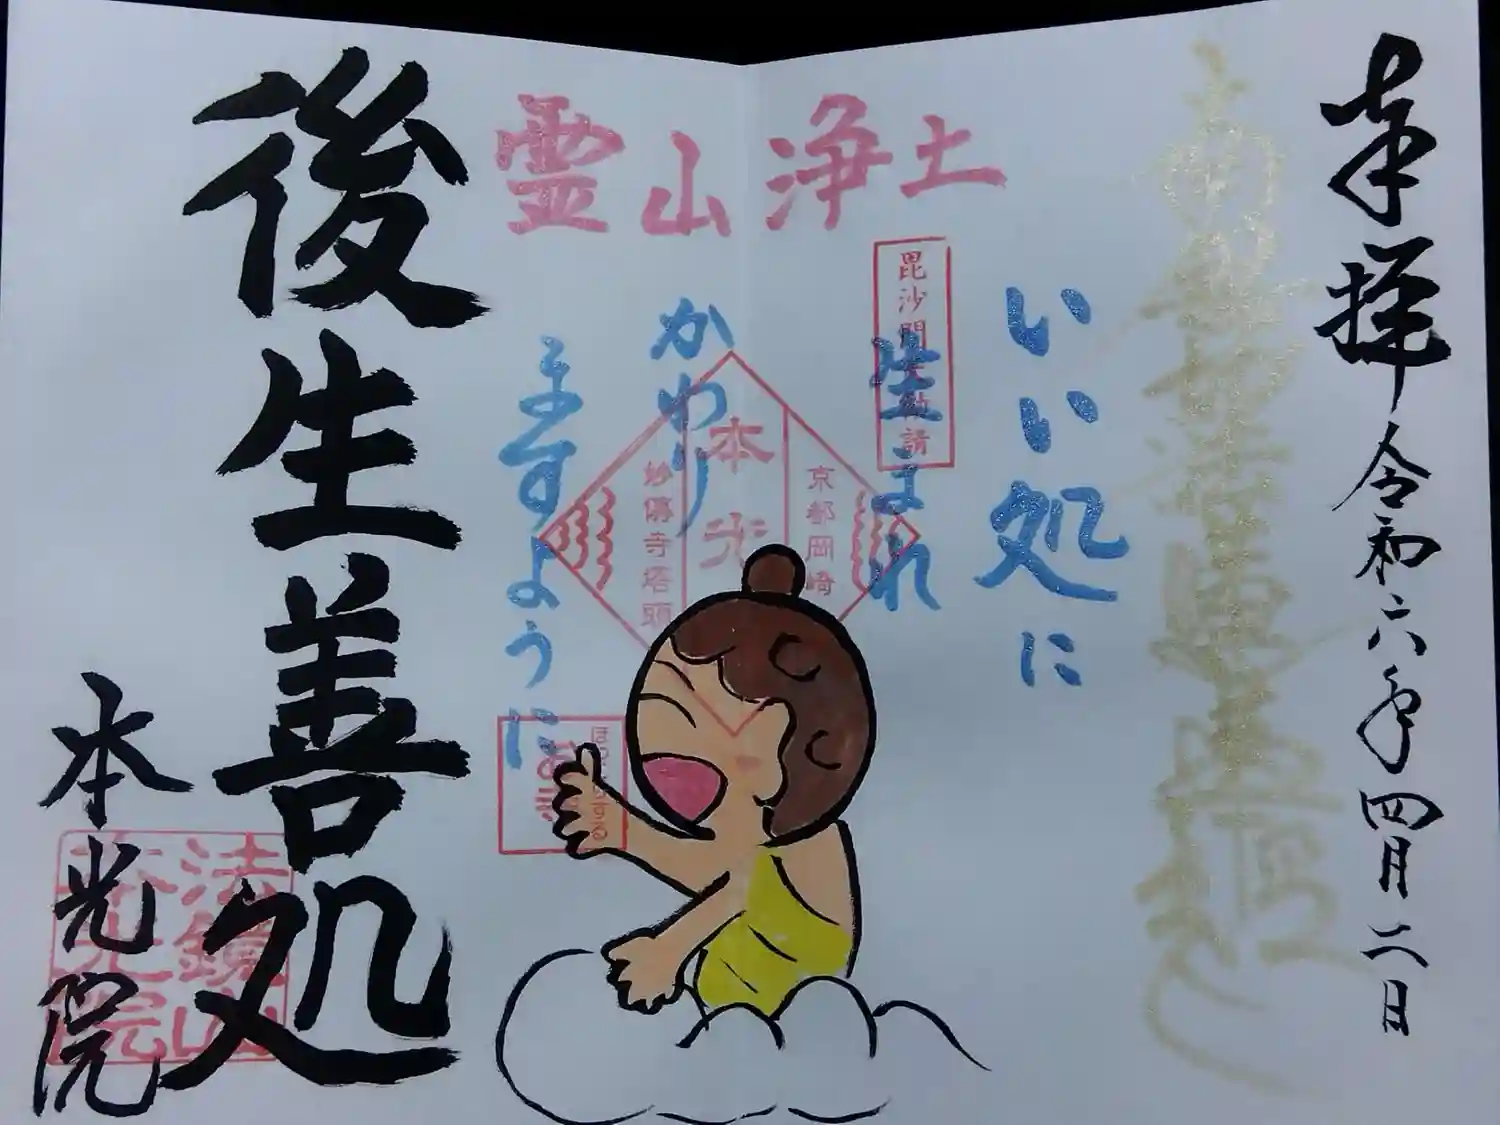 奉拝 令和六年四月二日
霊山浄土
いい処に
生まれ
かわり
ますように
毘沙門天勧請
京都岡崎
本光
妙傳寺塔頭
後生善処
本光院
法鏡山
本光院